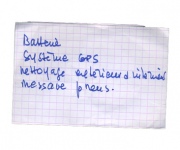 Batterie
Système GPS
nettoyage extérieur d intérieur
message pneus.